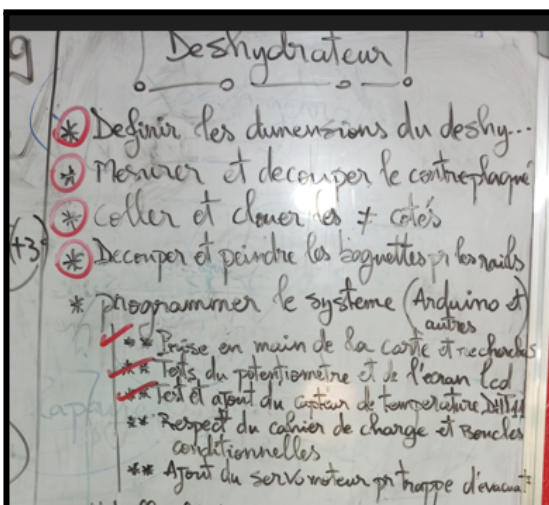 Deshydrateur
* Definir les dimensions du deshy...
* Mesurer et decouper le contreplaqué
* Coller et clouer les ≠ cotés
(+3) * Decouper et peindre les baguettes pr les rails
* programmer le systeme (Arduino et
autres
** Prise en main de la carte et recherches
** Tests du potentiomètre et de l'ecran lcd
** Test et ajout du capteur de temperature DHT11
** Respect du cahier de charge et Boucles
conditionnelles
** Ajout du servomoteur pr trappe d'evacuat°